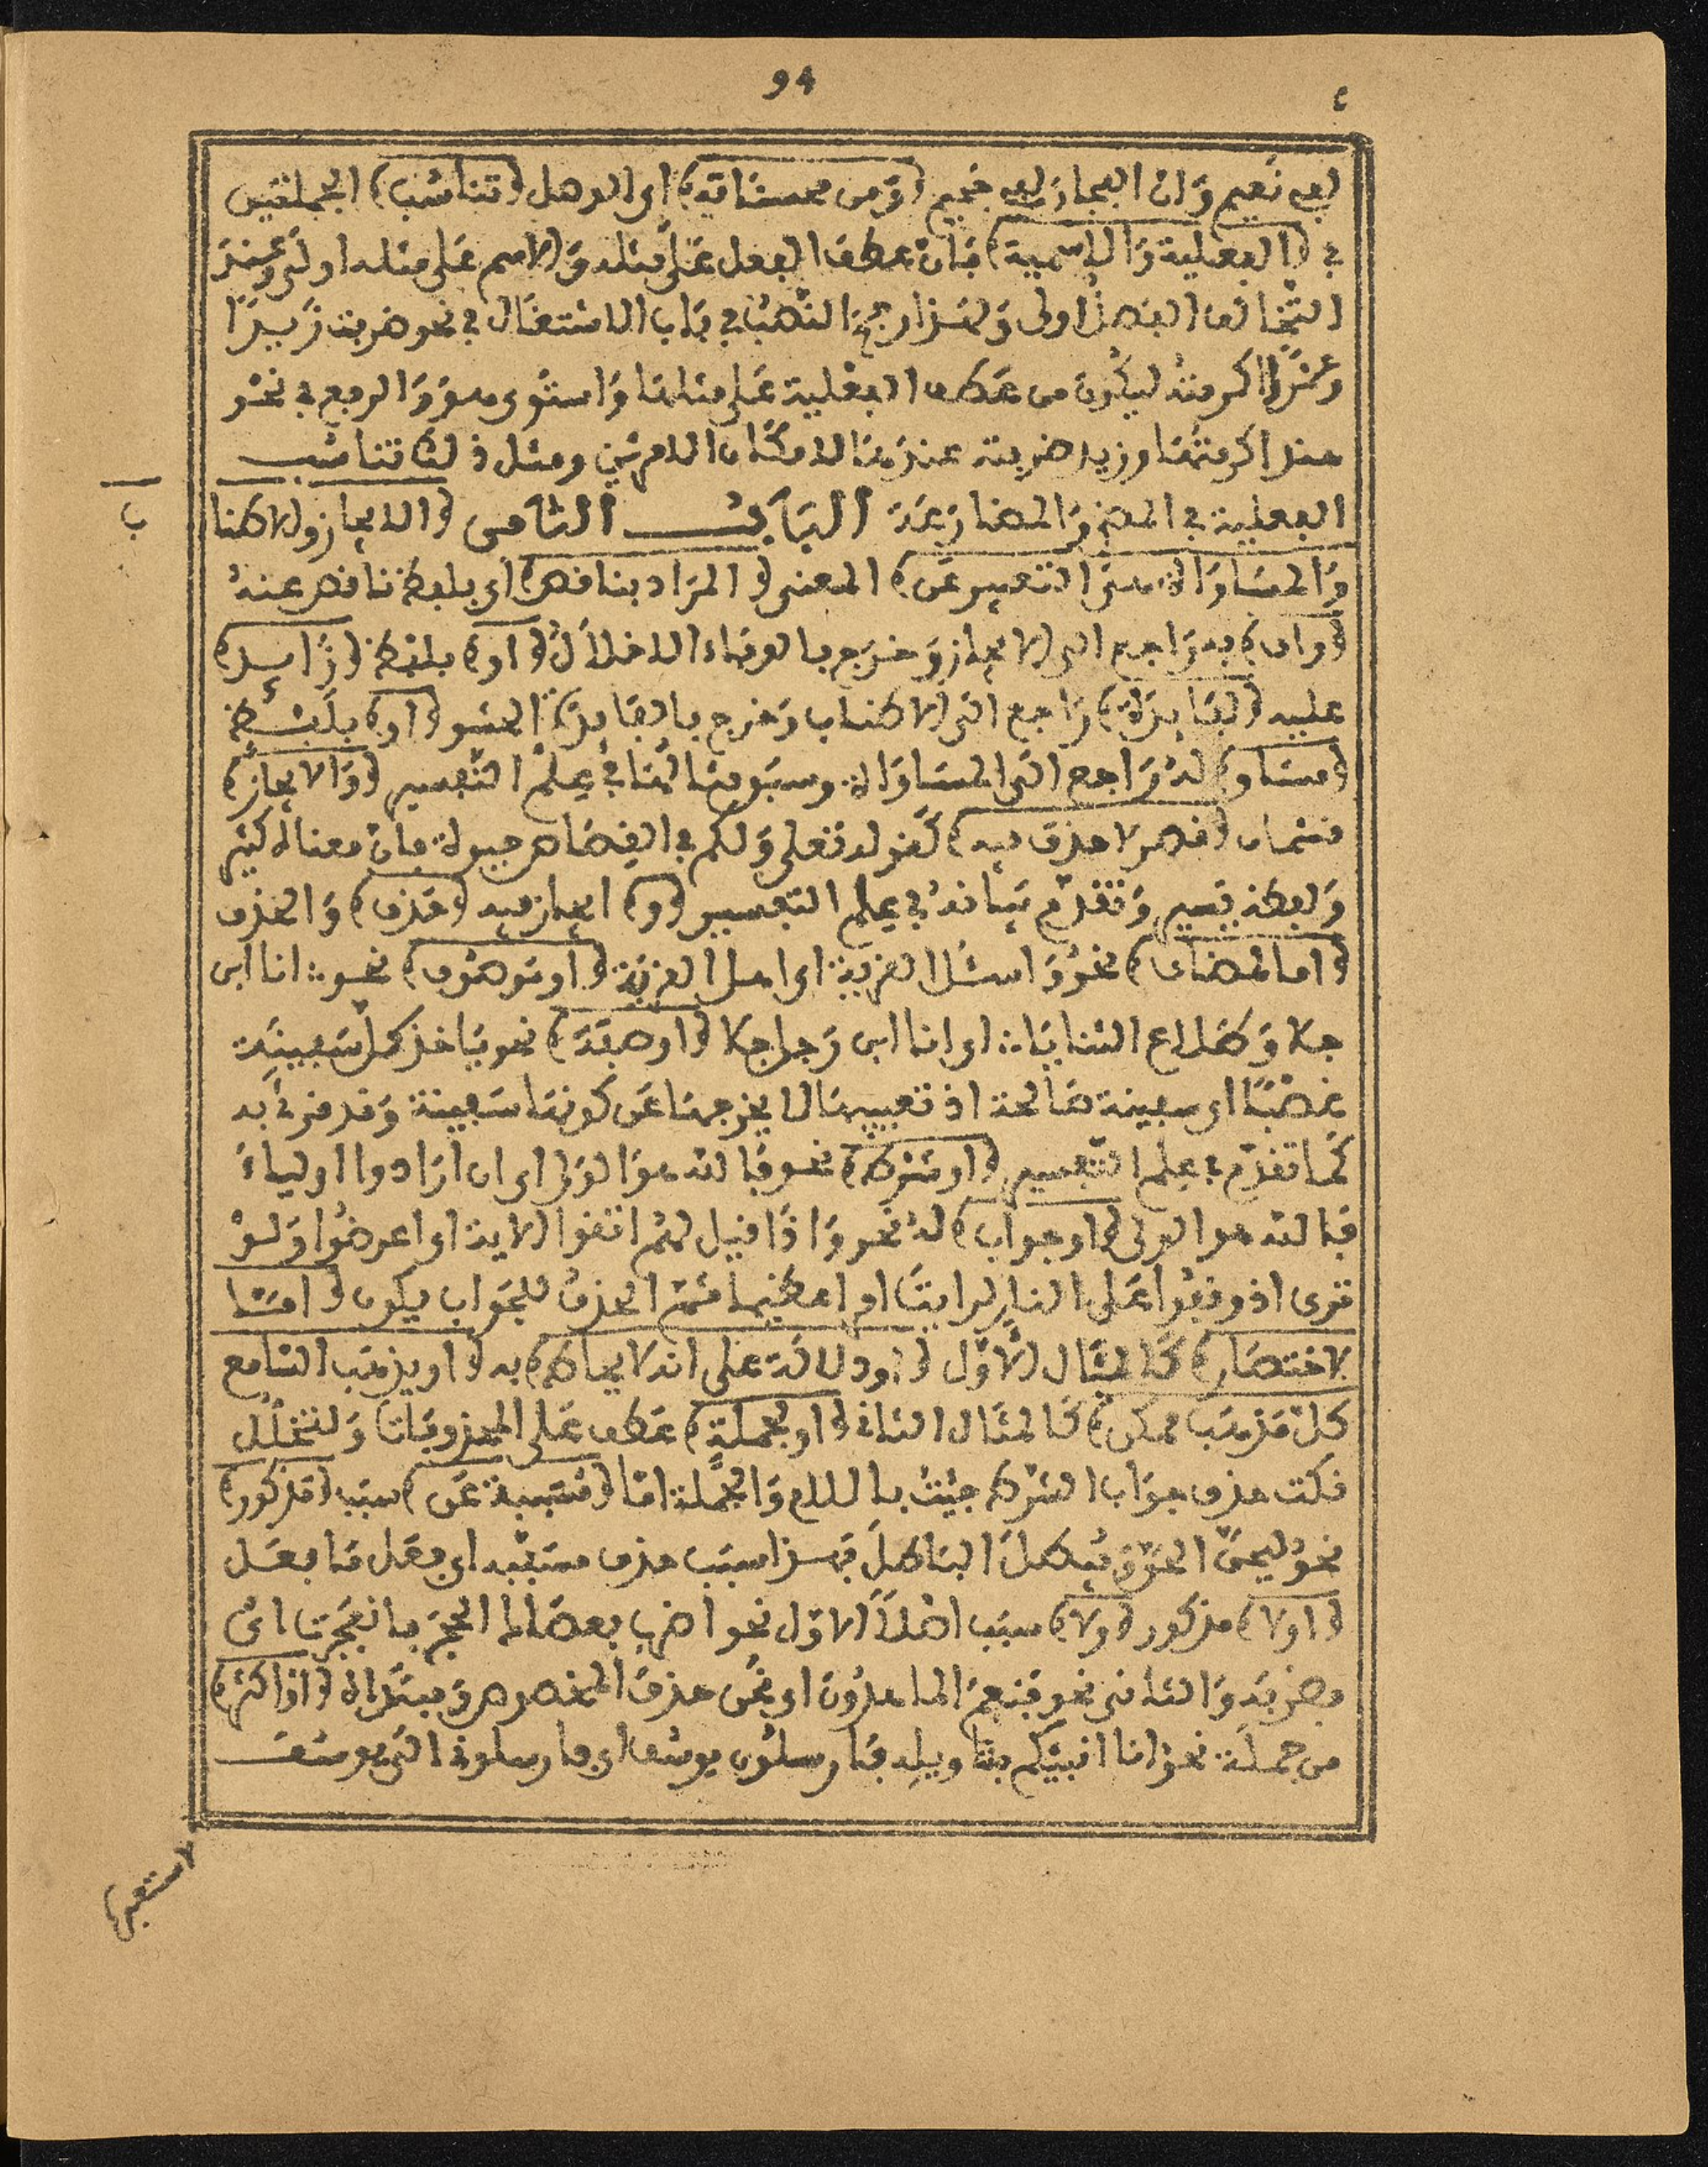 94
لفي نعيم وان الفجار لفي جحيم (ومن محسناته) اى الوصل (تناسب) الجملتين
في (الفعلية والاسمية) فان عطف الفعل على مثله والاسم على مثله اولى وعند
التخالف الفصل اولى ولهذا رجح النصب في باب الاشتغال في نحو ضربت زيدا
وعمرا اكرمته ليكون من عطف الفعلية على مثلها واستوى هو والرفع في نحو
هند اكرمتها وزيد ضربته عندها لامكان الامرين ومثل ذلك تناسب
الفعلية في المضى والمضارعة الباب الثامن (الايجاز والاطنا
ب
والمساواة هى التعبير عن) المعنى (المراد بناقص) اى بلفظ ناقص عنه
(واف) به راجع الى الايجاز وخرج بالوفاء الاخلال (او) بلفظ (زايد)
عليه (لفايدة) راجع الى الاطناب وخرج بالفايدة الحشو (او) بلفظ
(مساو) له راجع الى المساواة وسبق مثالها في علم التفسير (والايجاز)
قسمان (قصر لا حذف فيه) كقوله تعلى ولكم في القصاص حيوة فان معناه كثير
ولفظه يسير وتقدم بيانه في علم التفسير (و) ايجاز فيه (حذف) والحذف
(اما لمضاف) نحو واسئل القرية اى اهل القرية (او موصوف) نحو انا ابن
جلا وطلاع الثنايا اى انا ابن رجل جلا (او صفة) نحو ياخذ كل سفينة
غصبا اى سفينة صالحة اذ تعييبها لا يخرجها عن كونها سفينة وقد قرئ به
كما تقدم في علم التفسير (او شرط) نحو فالله هو الولى اى ان ارادوا اولياء
فالله هو الولى (او جواب) له نحو واذا قيل لهم اتقوا الاية اى اعرضوا ولو
ترى اذ وقفوا على النار لرايت امرا عظيما ثم الحذف للجواب يكون (اما
لاختصار) كالمثال الاول (او دلالة على انه لا يحاط) به (او يذهب السامع
كل مذهب ممكن) كالمثال الثانى (او لجملة) عطف على المحذوفات ولتخلل
نكت حذف جواب الشرط جيئت باللام والجملة اما (مسببة عن) سبب (مذكور)
نحو ليحق الحق ويبطل الباطل فهذا سبب حذف مسببه اى فعل ما فعل
(اولا) مذكور (ولا) سبب اصلا الاول نحو اضرب بعصاك الحجر فانفجرت اى
فضربه والثانى نحو فنعم الماهدون اى نحن حذف المخصوص ومبتداه (او اكثر)
من جملة نحو انا انبيئكم بتاويله فارسلون يوسف اى فارسلونى الى يوسف
لاستعبرها